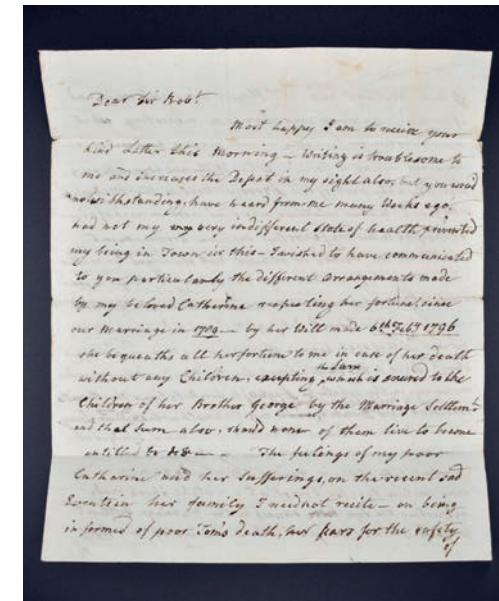 Dear Sir Robt.
Most happy I am to receive your
kind Letter this Morning – Writing is troublesome to
me and increases the Defect in my sight also, but you would
notwithstanding, have heard from me many Weeks ago,
had not my very indifferent state of health prevented
my being in Town ere this – I wished to have communicated
to you particularly the different Arrangements made
by my beloved Catherine respecting her fortune, since
our Marriage in 1789 – by her Will made 6th Feby 1796
she bequeaths all her fortune to me in case of her death
without any Children, excepting the Sum which is secured to the
Children of her Brother George by the Marriage Settlemt
and that Sum also, should none of them live to become
entitled &c &c – The feelings of my poor
Catharine and her Sufferings, on the recent sad
Event in her family I need not recite – on being
informed of poor Tom's death, her fears for the safety
of